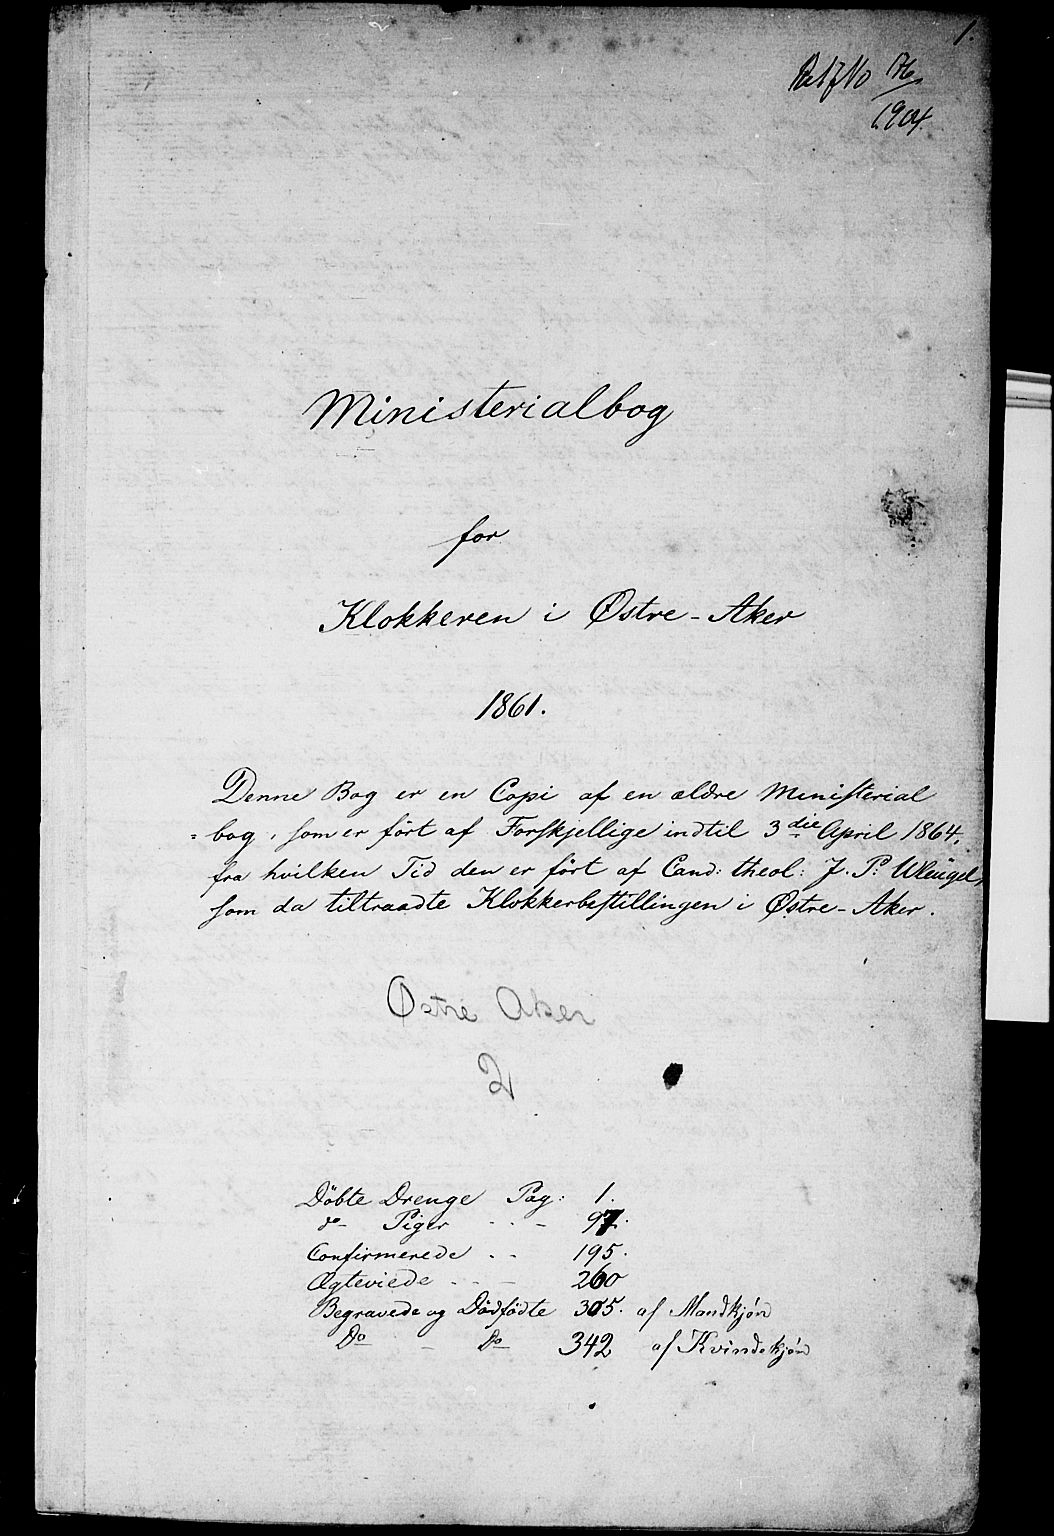 1.
1904.
Ministerialbog
for
Klokkeren i Østre-Aker
1861.
Denne Bog er en Copi af en ældre Ministerial
= bog, som er ført af Forskjellige indtil 3die April 1864,
fra hvilken Tid den er ført af Cand: theol: J. P.
som da tiltraadte Klokkerbestillingen i Østre-Aker.
Østre Aker
2
Döbte Drenge Pag: 1.
do - Piger - - - 97.
Confirmerede - - 195.
Ægteviede - - - 260
Begravede og Dødfødte 305. af Mandkjøn
Do - Do 342 af Kvindekjøn